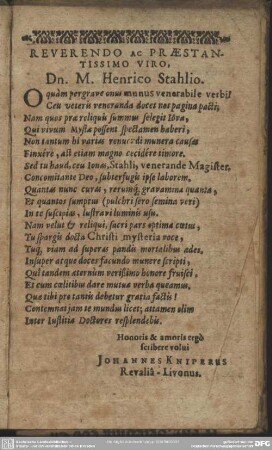 REVERENDO AC PRÆSTAN-
TISSIMO VIRO,
Dn. M. Henrico Stahlio.
O quàm pergrave onus munus venerabile verbi!
Ceu veteris veneranda docet nos pagina pacti,
Nam quos præ reliquis summus selegit Iova,
Qui vivum Mystæ possent spectamen haberi,
Non tantum hi varias renuerdi munera causas
Finxere, ast etiam magno cecidere timore.
Sed tu haud, ceu Ionas, Stahli, venerande Magister,
Concomitante Deo, subterfugis ipse laborem,
Quantas nunc curas, rerumq́, gravamina quanta,
Et quantos sumptus (pulchri sero semina veri)
In te suscipias, lustravi luminis usu.
Nam velut & reliqui, sacri pars optima cœtus,
Tu spargis docta Christi mysteria voce,
Tuq́, viam ad superas pandis mortalibus ades,
Insuper atque doces facundo munere scripti,
Qui tandem æternùm verissimo honore fruisci,
Et cum cœlitibus dare mutua verba queamus,
Quæ tibi pro tantis debetur gratia factis!
Contemnat jam te mundus licet; attamen olim
Inter Iustitiæ Doctores resplendebis.
Honoris & amoris ergò
scribere volui
JOHANNES KNIPERUS
Revaliâ-Livonus.